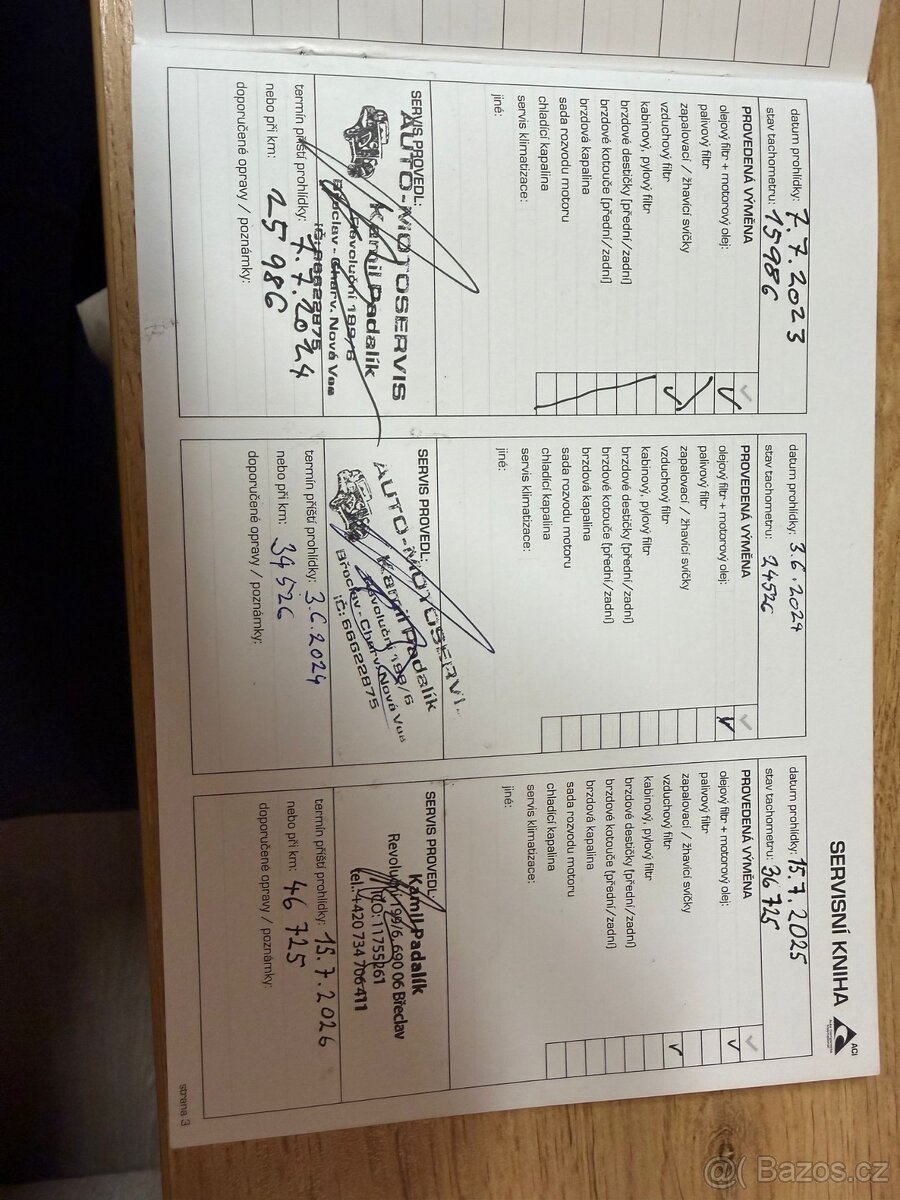 SERVISNÍ KNIHA
ACI
datum prohlídky: 7.7.2023
stav tachometru: 15986
PROVEDENÁ VÝMĚNA
olejový filtr + motorový olej:
palivový filtr
zapalovací / žhavicí svíčky
vzduchový filtr
kabinový, pylový filtr
brzdové destičky [přední/zadní]
brzdové kotouče [přední/zadní]
brzdová kapalina
sada rozvodu motoru
chladící kapalina
servis klimatizace:
jiné:
SERVIS PROVEDL:
AUTO-MOTOSERVIS
Kamil Padalík
Revoluční 199/6
Břeclav - Charv. Nová Ves
IČ: 66622875
termín příští prohlídky: 7.7.2024
nebo při km: 25986
doporučené opravy / poznámky:
datum prohlídky: 3.6.2024
stav tachometru: 24526
PROVEDENÁ VÝMĚNA
olejový filtr + motorový olej:
palivový filtr
zapalovací / žhavicí svíčky
vzduchový filtr
kabinový, pylový filtr
brzdové destičky [přední/zadní]
brzdové kotouče [přední/zadní]
brzdová kapalina
sada rozvodu motoru
chladící kapalina
servis klimatizace:
jiné:
SERVIS PROVEDL:
AUTO-MOTOSERVI
Kamil Padalík
Revoluční 199/6
Břeclav - Charv. Nová Ves
IČ: 66622875
termín příští prohlídky: 3.6.2024
nebo při km: 34526
doporučené opravy / poznámky:
datum prohlídky: 15.7.2025
stav tachometru: 36725
PROVEDENÁ VÝMĚNA
olejový filtr + motorový olej:
palivový filtr
zapalovací / žhavicí svíčky
vzduchový filtr
kabinový, pylový filtr
brzdové destičky [přední/zadní]
brzdové kotouče [přední/zadní]
brzdová kapalina
sada rozvodu motoru
chladící kapalina
servis klimatizace:
jiné:
SERVIS PROVEDL:
Kamil Padalík
Revoluční 199/6, 690 06 Břeclav
IČO: 11755261
tel.: +420 734 706 411
termín příští prohlídky: 15.7.2026
nebo při km: 46725
doporučené opravy / poznámky:
strana 3
@ Bazos.cz